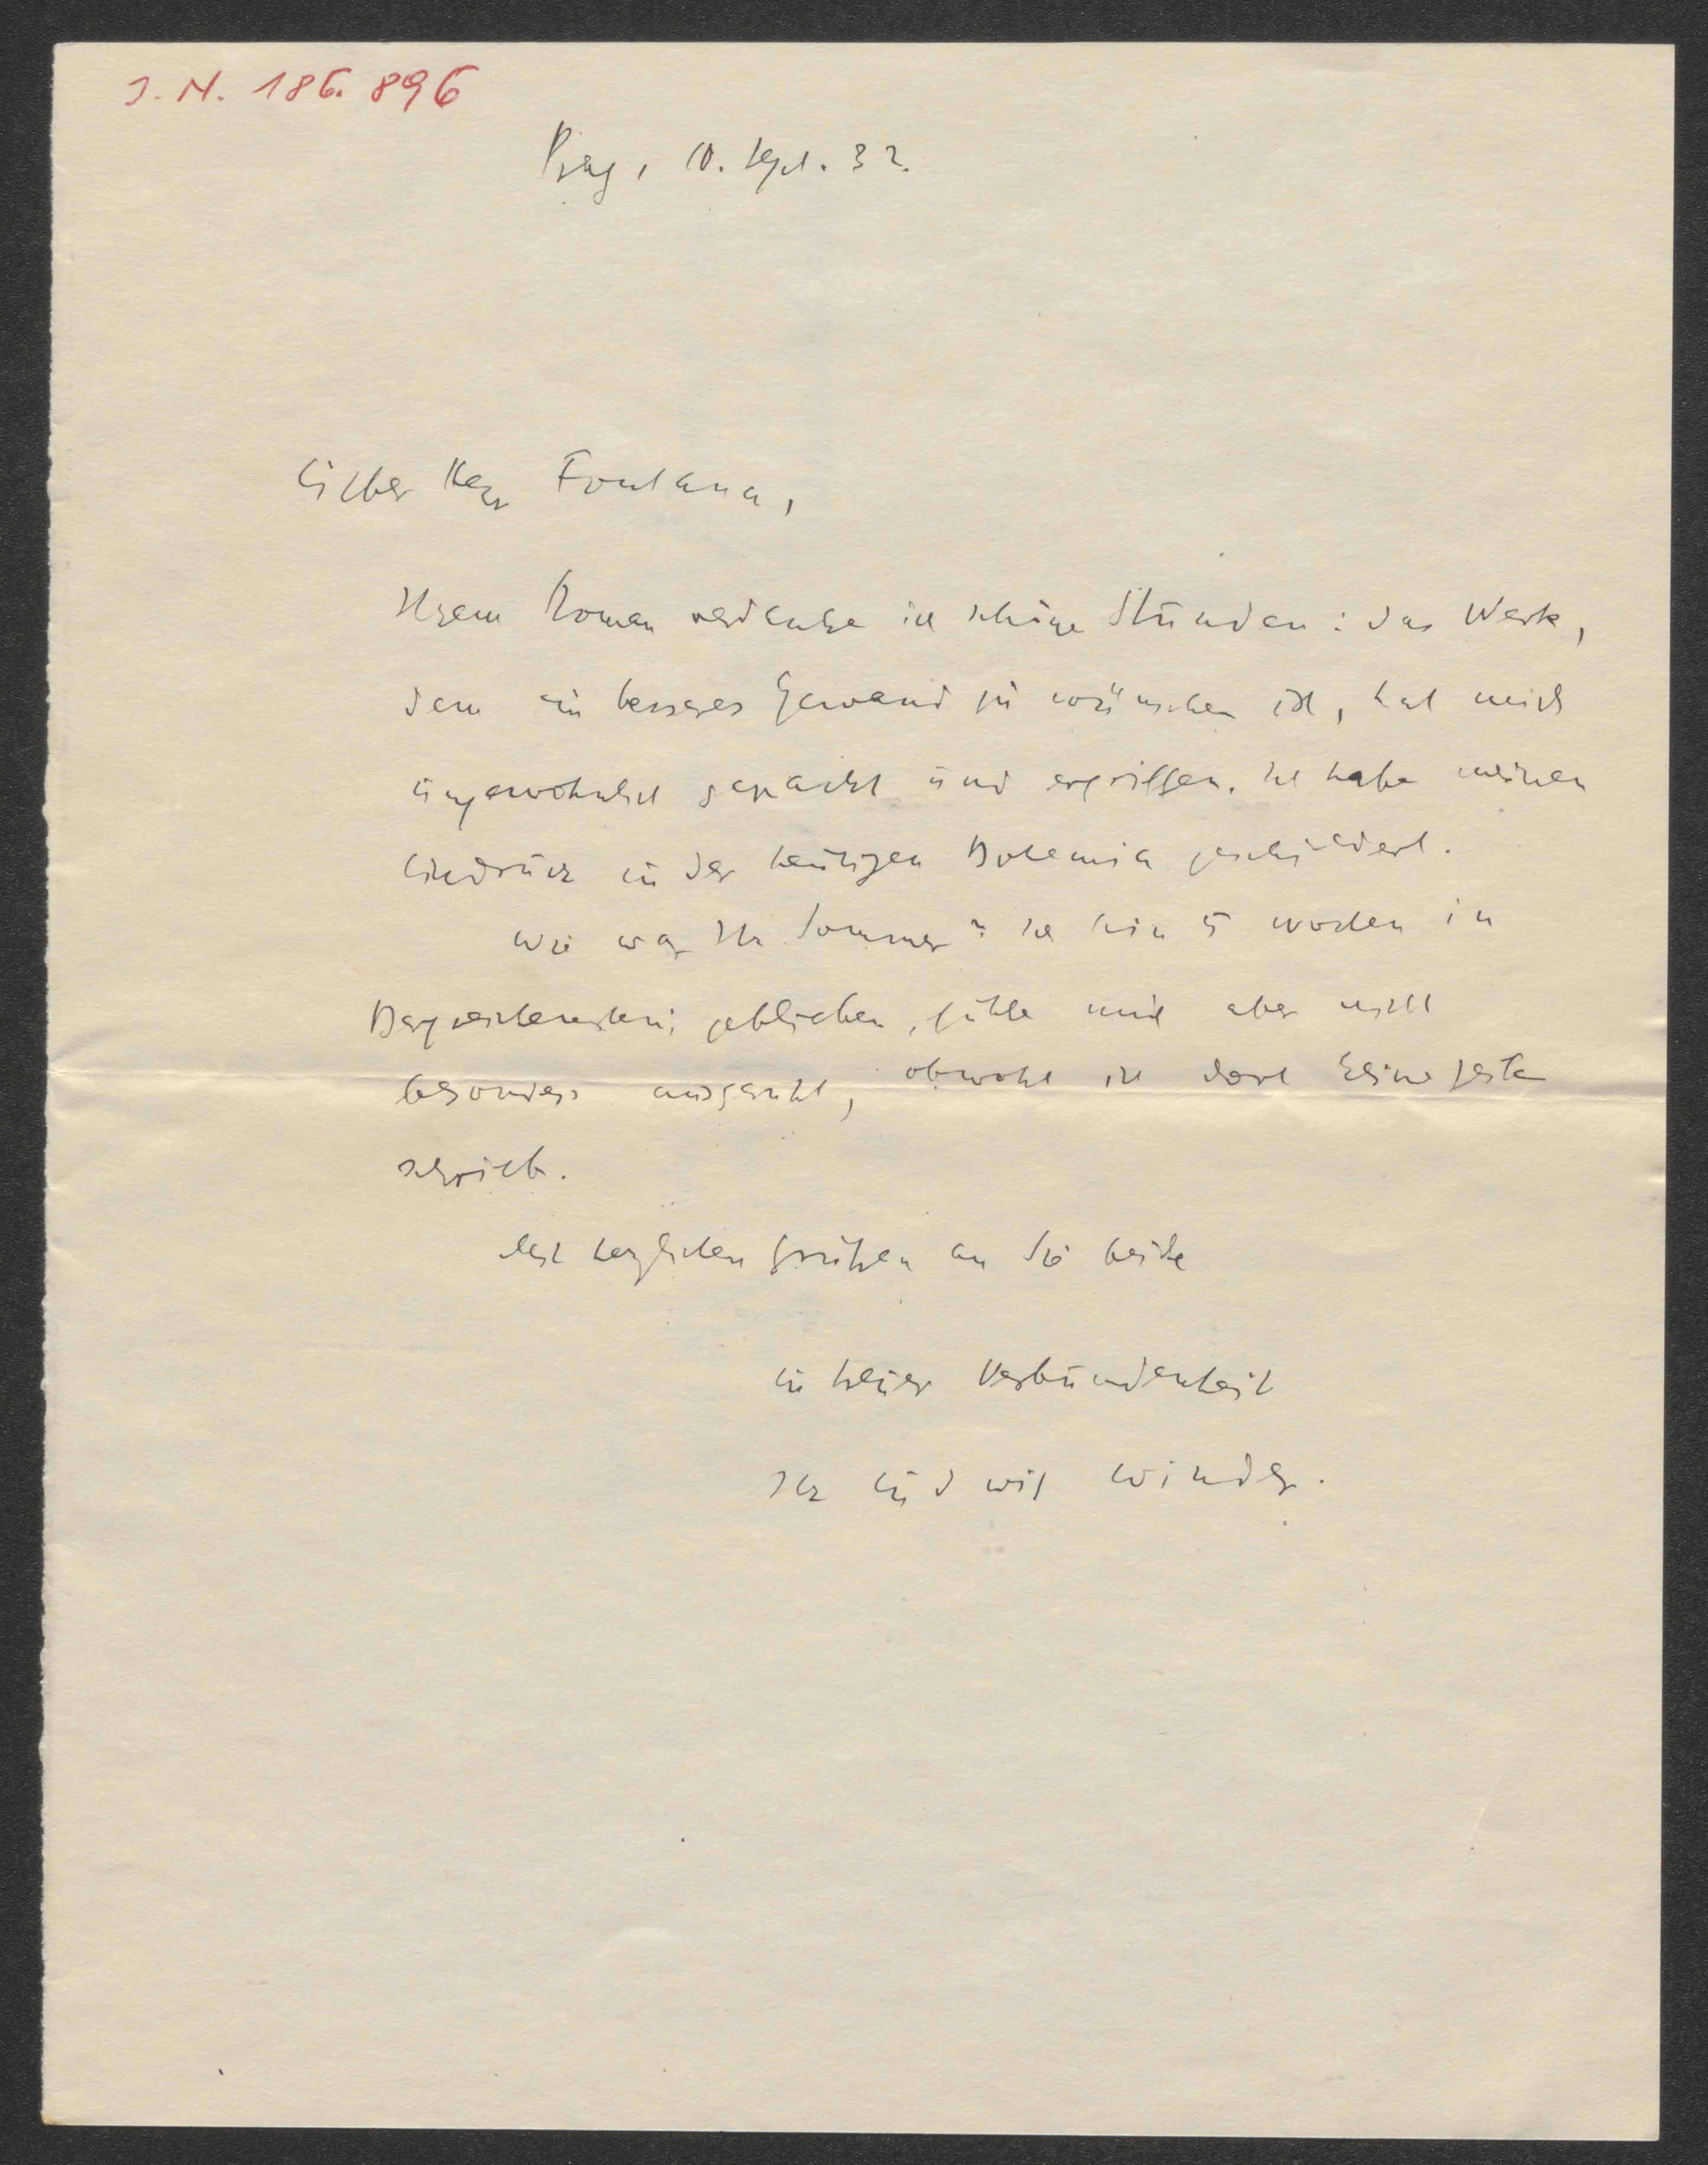 J. N. 186.896
Prag, 10. Sept. 32.
Lieber Herr Fontana,
Ihrem Roman verdanke ich schöne Stunden: das Werk,
dem ein besseres Gewand zu wünschen ist, hat mich
ungewöhnlich gepackt und ergriffen. Ich habe meinen
Eindruck in der heutigen Bohemia geschildert.
Wie war Ihr Sommer? Ich bin 5 Wochen in
geblieben, fühle mich aber nicht
besonders ausgeruht, obwohl ich dort keine Zeile
schrieb.
Mit herzlichen Grüßen an Sie beide
in treuer Verbundenheit
Ihr Ludwig Winder.